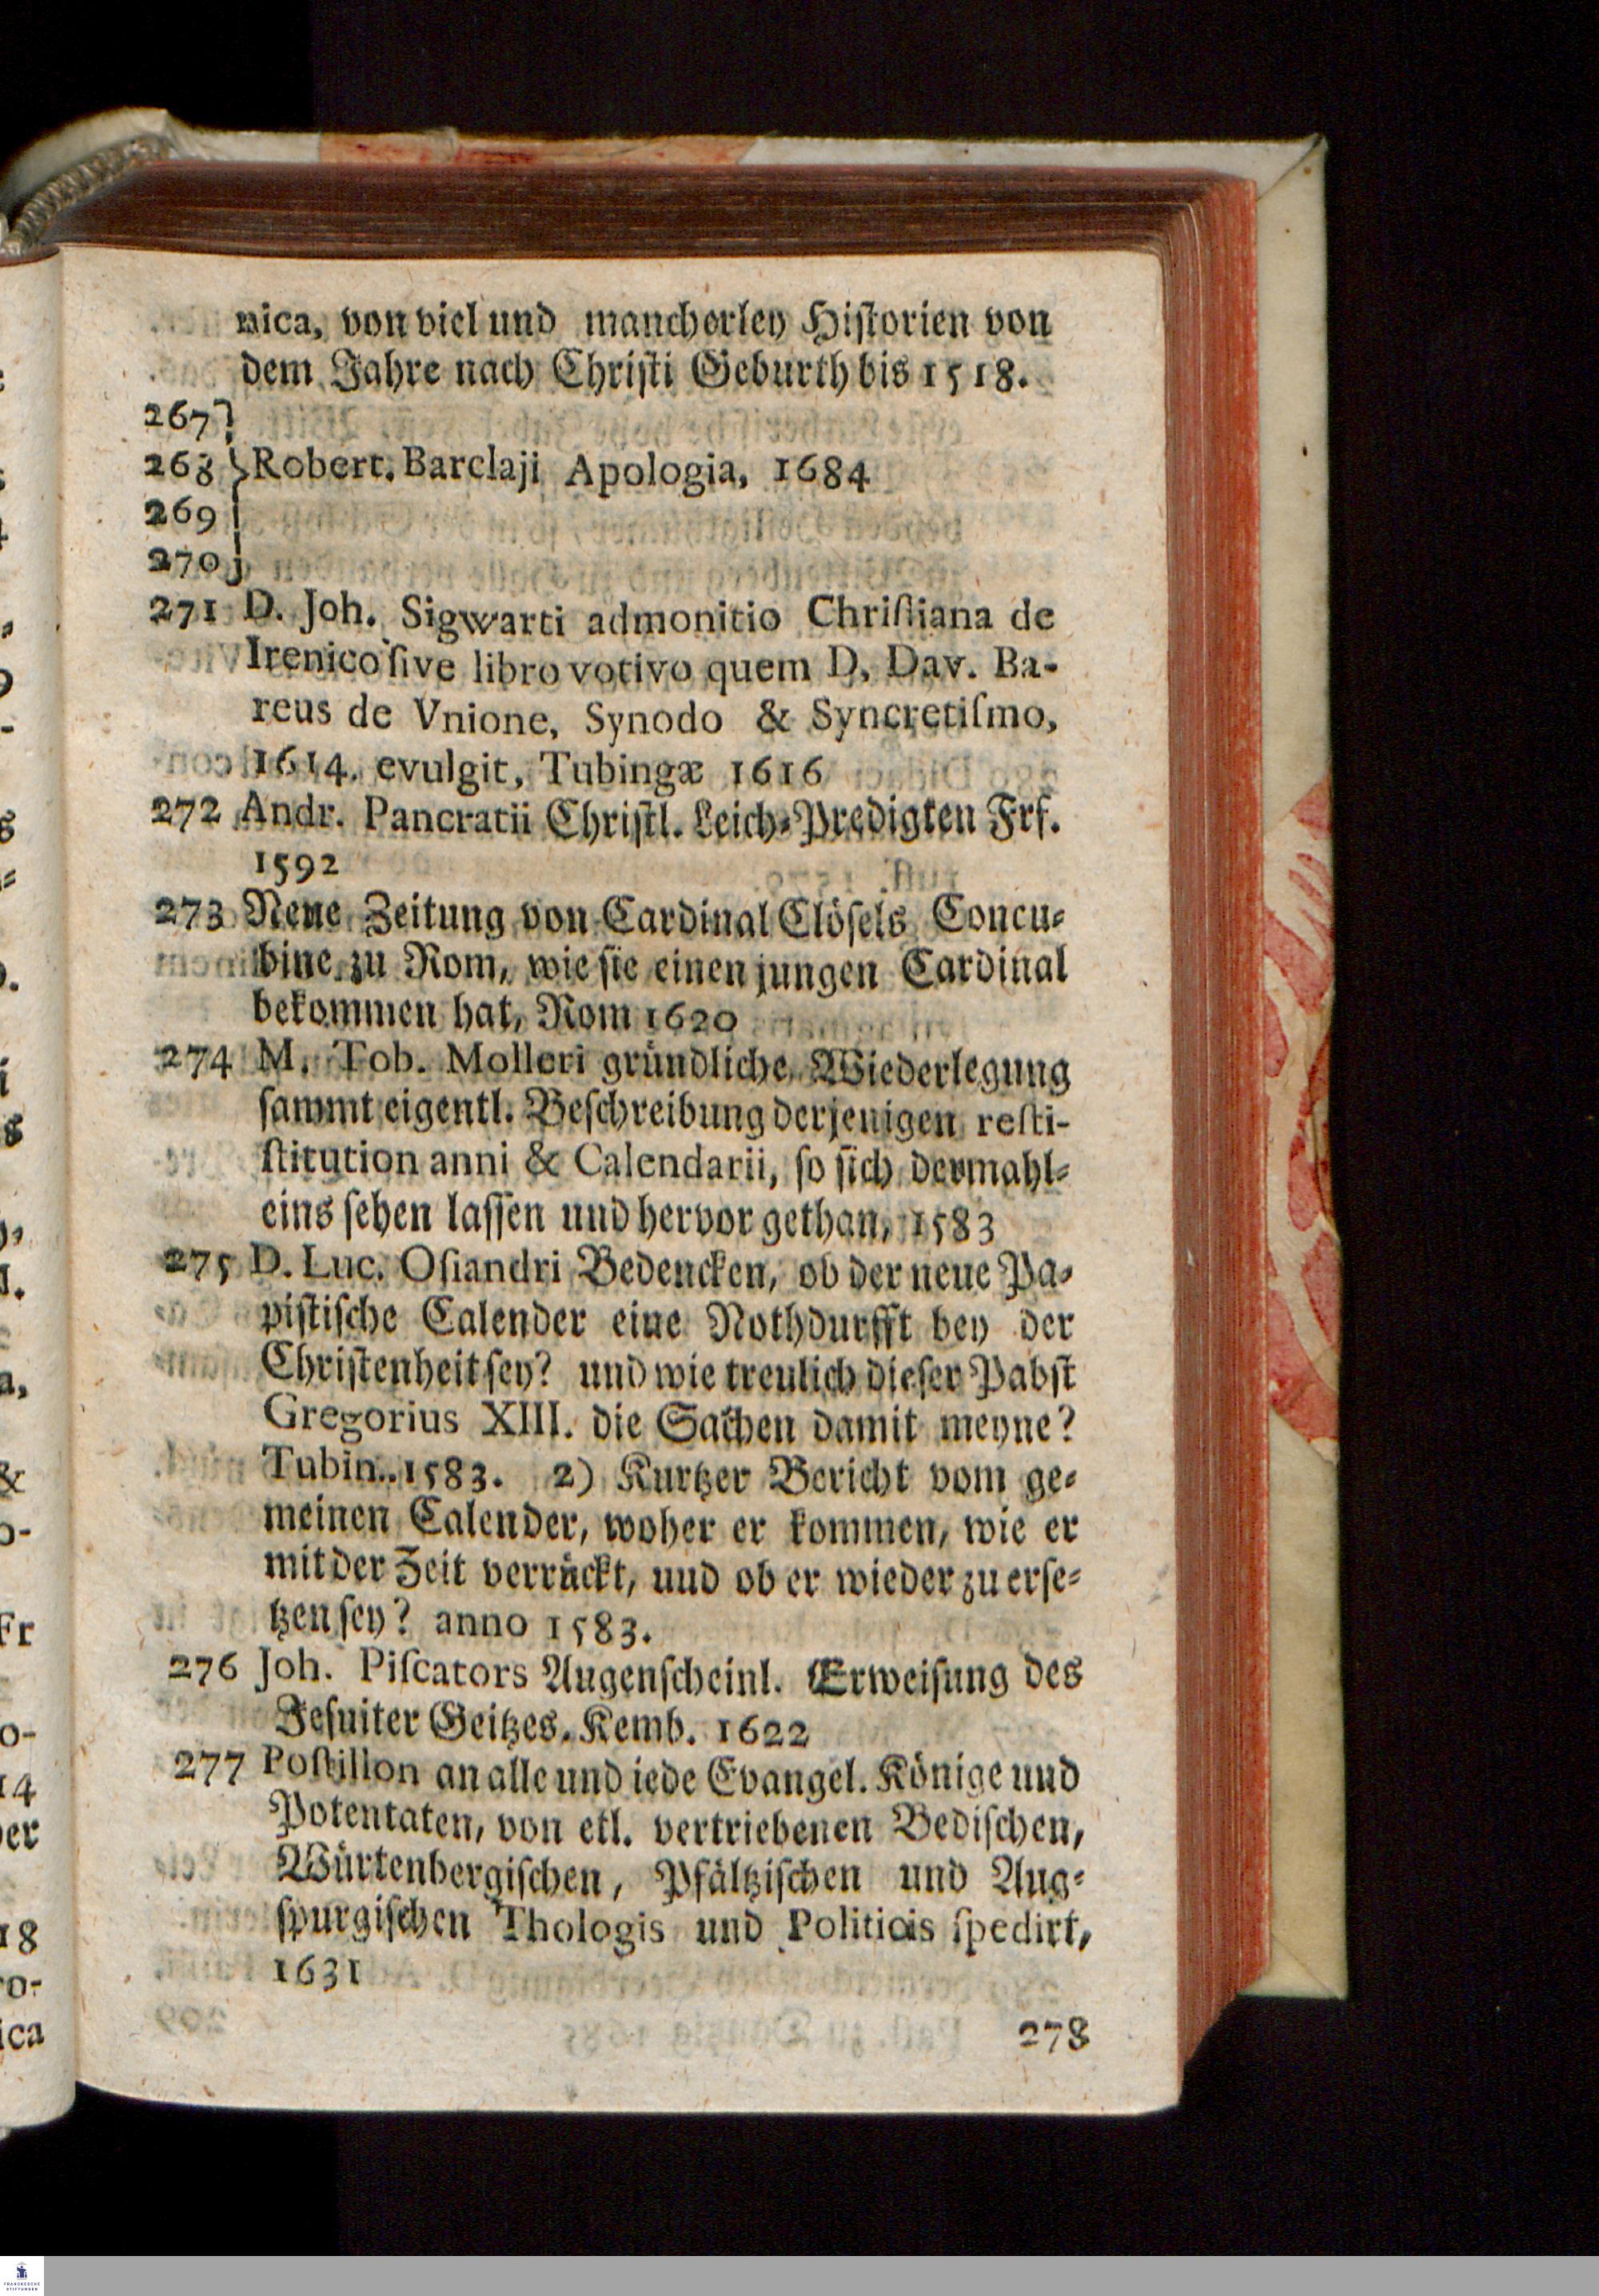 nica, von viel und mancherley Historien von
dem Jahre nach Christi Geburth bis 1518.
267
268 Robert. Barclaji Apologia, 1684
269
270
271 D. Joh. Sigwarti admonitio Chriſtiana de
Irenico ſive libro votivo quem D. Dav. Ba-
reus de Vnione, Synodo & Syncretiſmo,
1614. evulgit, Tubingæ 1616
272 Andr. Pancratii Chriſtl. Leich-Predigten Frf.
1592
273 Neue Zeitung von Cardinal Clöſels Concu-
bine zu Rom, wie ſie einen jungen Cardinal
bekommen hat, Rom 1620
274 M. Tob. Molleri gründliche Wiederlegung
ſammt eigentl. Beſchreibung derjenigen reſti-
ſtitution anni & Calendarii, ſo ſich dermahl-
eins ſehen laſſen und hervor gethan, 1583
275 D. Luc. Oſiandri Bedencken, ob der neue Pa-
piſtiſche Calender eine Nothdurfft bey der
Chriſtenheit ſey? und wie treulich dieſer Pabſt
Gregorius XIII. die Sachen damit meyne?
Tubin. 1583. 2) Kurtzer Bericht vom ge-
meinen Calender, woher er kommen, wie er
mit der Zeit verrückt, und ob er wieder zu erſe-
tzen ſey? anno 1583.
276 Joh. Piſcators Augenſcheinl. Erweiſung des
Jeſuiter Geitzes. Kemb. 1622
277 Poſtillon an alle und iede Evangel. Könige und
Potentaten, von etl. vertriebenen Bediſchen,
Würtenbergiſchen, Pfältziſchen und Aug-
ſpurgiſchen Thologis und Politicis ſpedirt,
1631
278